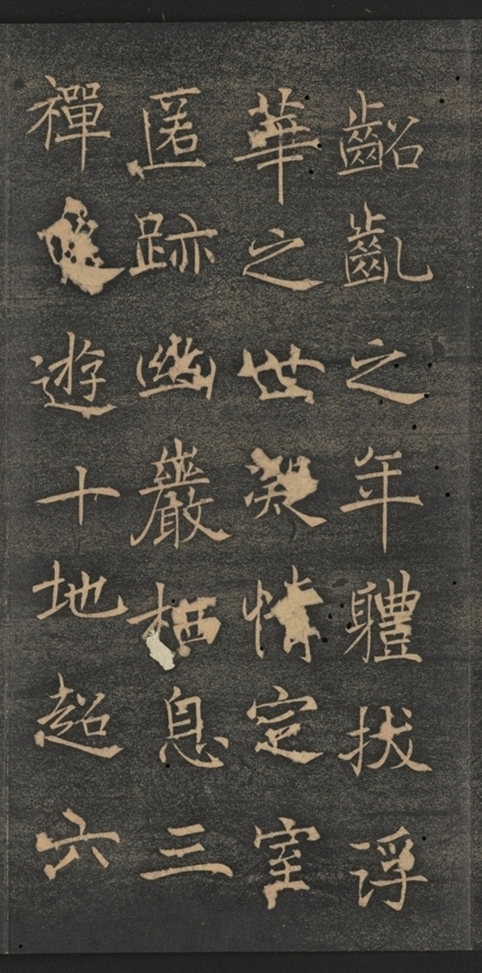 齠齔之年軆拔浮
華之世凝情定室
匿跡幽巖栖息三
禪遊十地超六